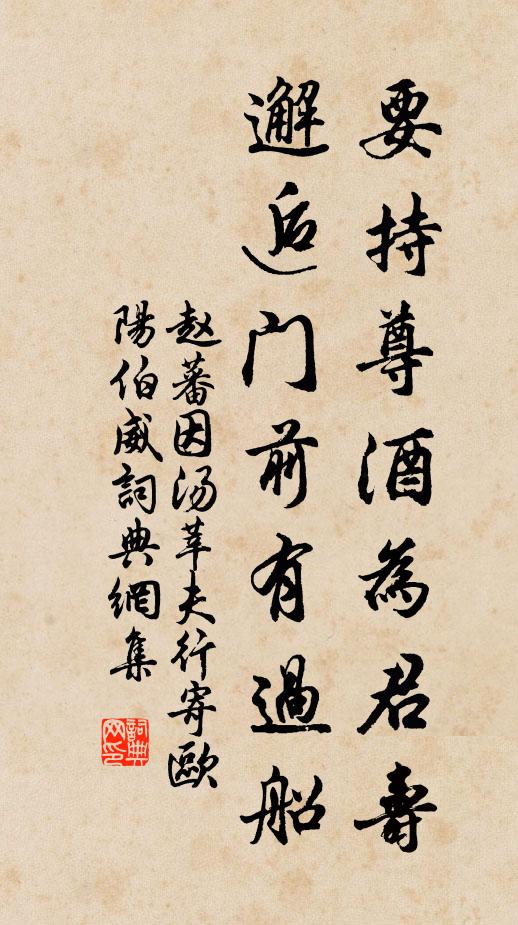 要持尊酒為君壽
邂逅门前有過船
赵蕃因汤莘夫行寄歐
陽伯威詞典網集
詞典网印